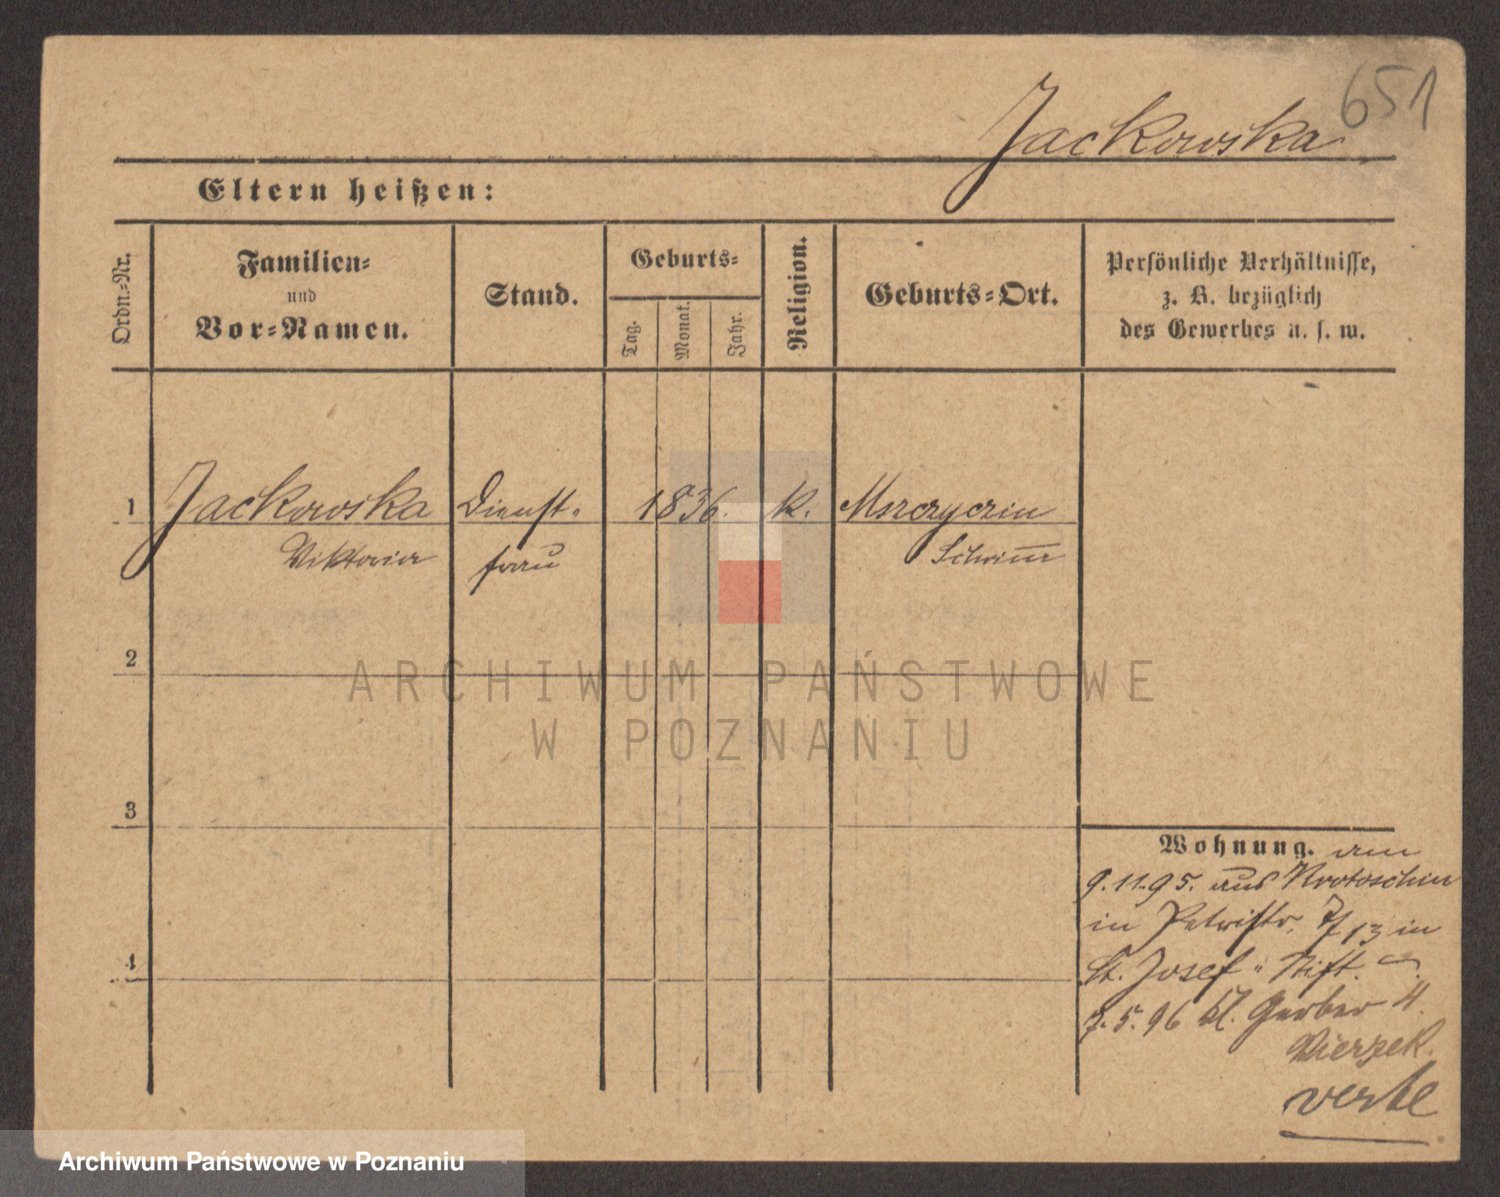 651
Jackowska
Eltern heißen:
Ordn.-Nr.
Familien-
und
Vor-Namen.
Stand.
Geburts-
Tag.
Monat.
Jahr.
Religion.
Geburts-Ort.
Persönliche Verhältnisse,
z. B. bezüglich
des Gewerbes u. s. w.
1 Jackowska Dienst- 1836. k. Mszczyczin
Viktoria frau Schrimm
2
ARCHIWUM PAŃSTWOWE
W POZNANIU
3
Wohnung. am
9.11.95. aus Krotoschin
in Petristr. 7/13 in
4
St. Josef- Stift.
7.5.96 Kl. Gerber 4.
Vierzek.
verte
Archiwum Państwowe w Poznaniu